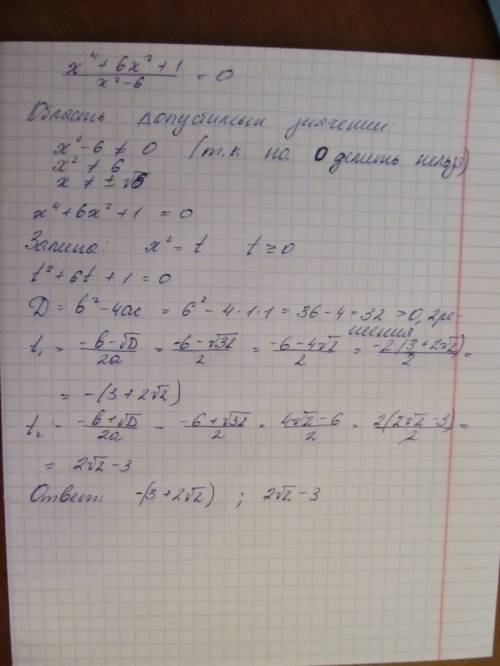 x⁴+6x²+1 / x²-6 = 0
Область допустимых значений:
x²-6 ≠ 0 (т.к на 0 делить нельзя)
x² ≠ 6
x ≠ ±√6
x⁴+6x²+1 = 0
Замена: x² = t t ≥ 0
t²+6t+1 = 0
D = b²-4ac = 6²-4·1·1 = 36-4 = 32 >0, 2 ре-
шения
t₁ = -b-√D / 2a = -6-√32 / 2 = -6-4√2 / 2 = -2(3+2√2) / 2 =
= -(3+2√2)
t₂ = -b+√D / 2a = -6+√32 / 2 = 4√2-6 / 2 = 2(2√2-3) / 2 =
= 2√2-3
Ответ: -(3+2√2) ; 2√2-3